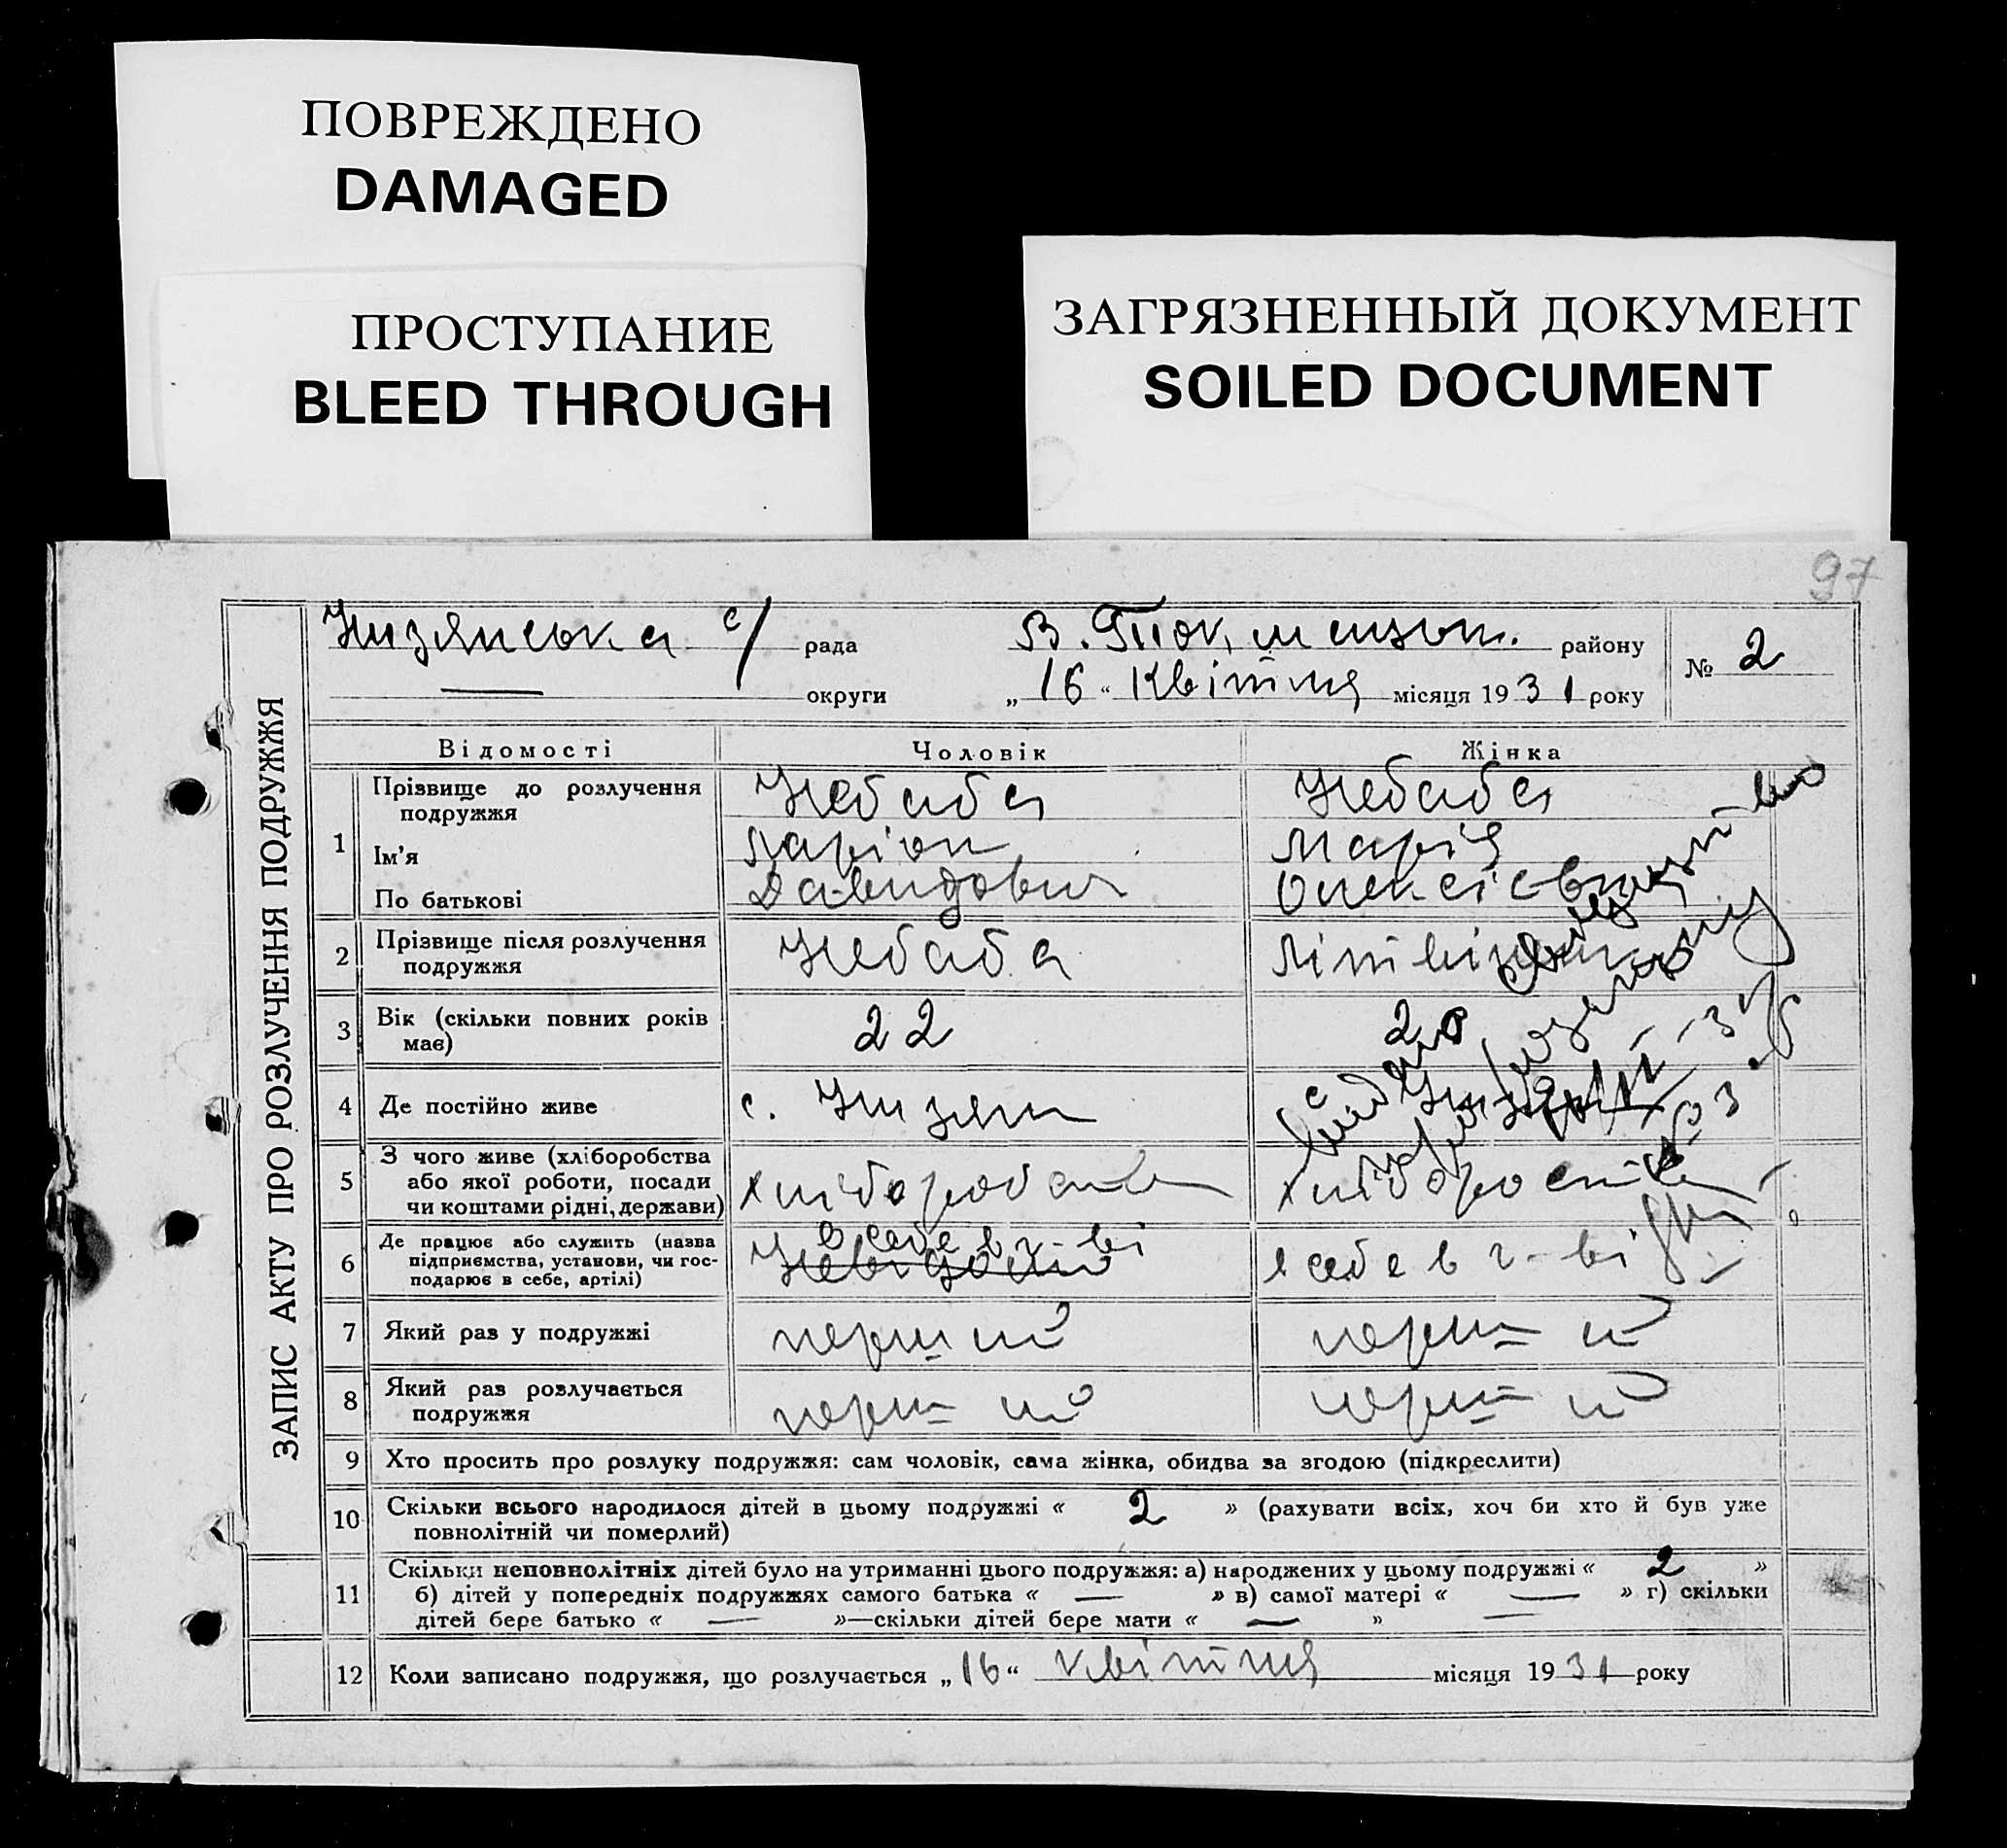 ПОВРЕЖДЕНО
DAMAGED
ПРОСТУПАНИЕ
BLEED THROUGH
ЗАГРЯЗНЕННЫЙ ДОКУМЕНТ
SOILED DOCUMENT
97
ЗАПИС АКТУ ПРО РОЗЛУЧЕННЯ ПОДРУЖЖЯ
Низянська с/ рада
В. Ток, району
№ 2
— округи
„ 16 “ Квітня місяця 1931 року
Відомості Чоловік Жінка
1
Прізвище до розлучення подружжя Небаба Небаба
Ім'я Ларіон Марія
По батькові Давидович Олексіевна
2 Прізвище після розлучення подружжя Небаба
3 Вік (скільки повних років має) 22 20
4 Де постійно живе с. Низяни с.
5 З чого живе (хліборобства або якої роботи, посади чи коштами рідні, держави)
6 Де працює або служить (назва підприємства, установи, чи господарює в себе, артілі) в себе в г-ві в себе в г-ві
7 Який раз у подружжі перший перший
8 Який раз розлучається подружжя перший перший
9 Хто просить про розлуку подружжя: сам чоловік, сама жінка, обидва за згодою (підкреслити)
10 Скільки всього народилося дітей в цьому подружжі « 2 » (рахувати всіх, хоч би хто й був уже
повнолітній чи померлий)
11 Скільки неповнолітніх дітей було на утриманні цього подружжя: а) народжених у цьому подружжі « 2 »
б) дітей у попередніх подружжях самого батька « — » в) самої матері « — » г) скільки
дітей бере батько « — »—скільки дітей бере мати « — »
12 Коли записано подружжя, що розлучається „ 16 “ квітня місяця 1931 року